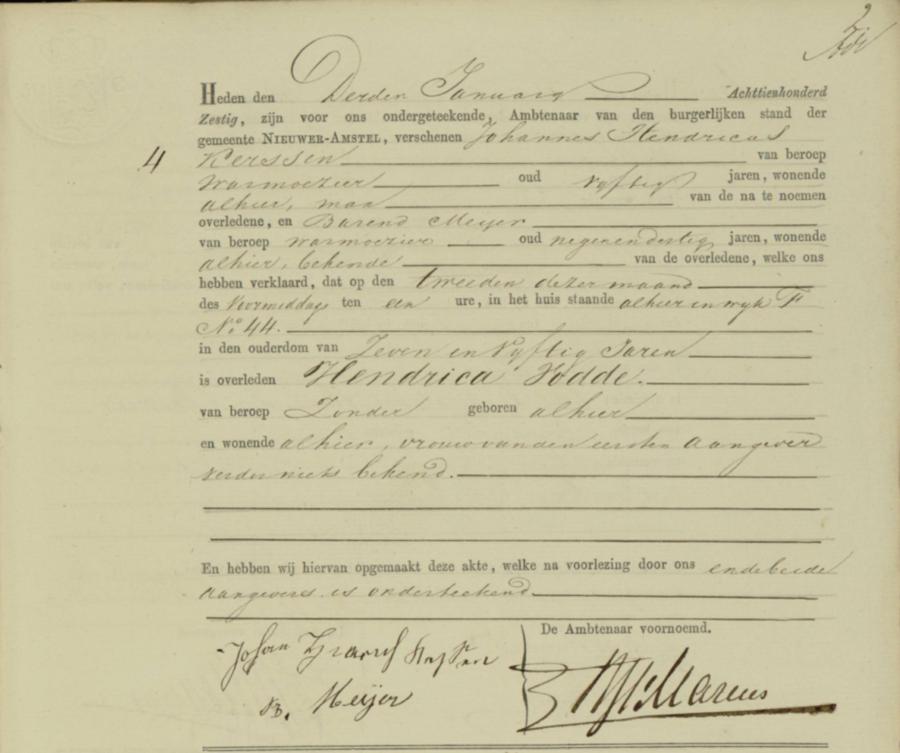 2
Heden den Derden Januarij Achttienhonderd
Zestig, zijn voor ons ondergeteekende, Ambtenaar van den burgerlijken stand der
gemeente NIEUWER-AMSTEL, verschenen Johannes Hendricus
4 Kerssen van beroep
Warmoezier oud vyftig jaren, wonende
alhier, man van de na te noemen
overledene, en Barend Meijer
van beroep warmoezier oud negenendertig jaren, wonende
alhier, bekende van de overledene, welke ons
hebben verklaard, dat op den tweeden dezer maand
des Voormiddags ten een ure, in het huis staande alhier in wyk F
No 44.
in den ouderdom van Zeven en Vyftig Jaren
is overleden Hendrica Vodde.
van beroep Zonder geboren alhier
en wonende alhier, vrouw van den eersten aangever
verder niets bekend.
En hebben wij hiervan opgemaakt deze akte, welke na voorlezing door ons en de beide
aangevers is onderteekend
De Ambtenaar voornoemd.
Johan
B. Meijer